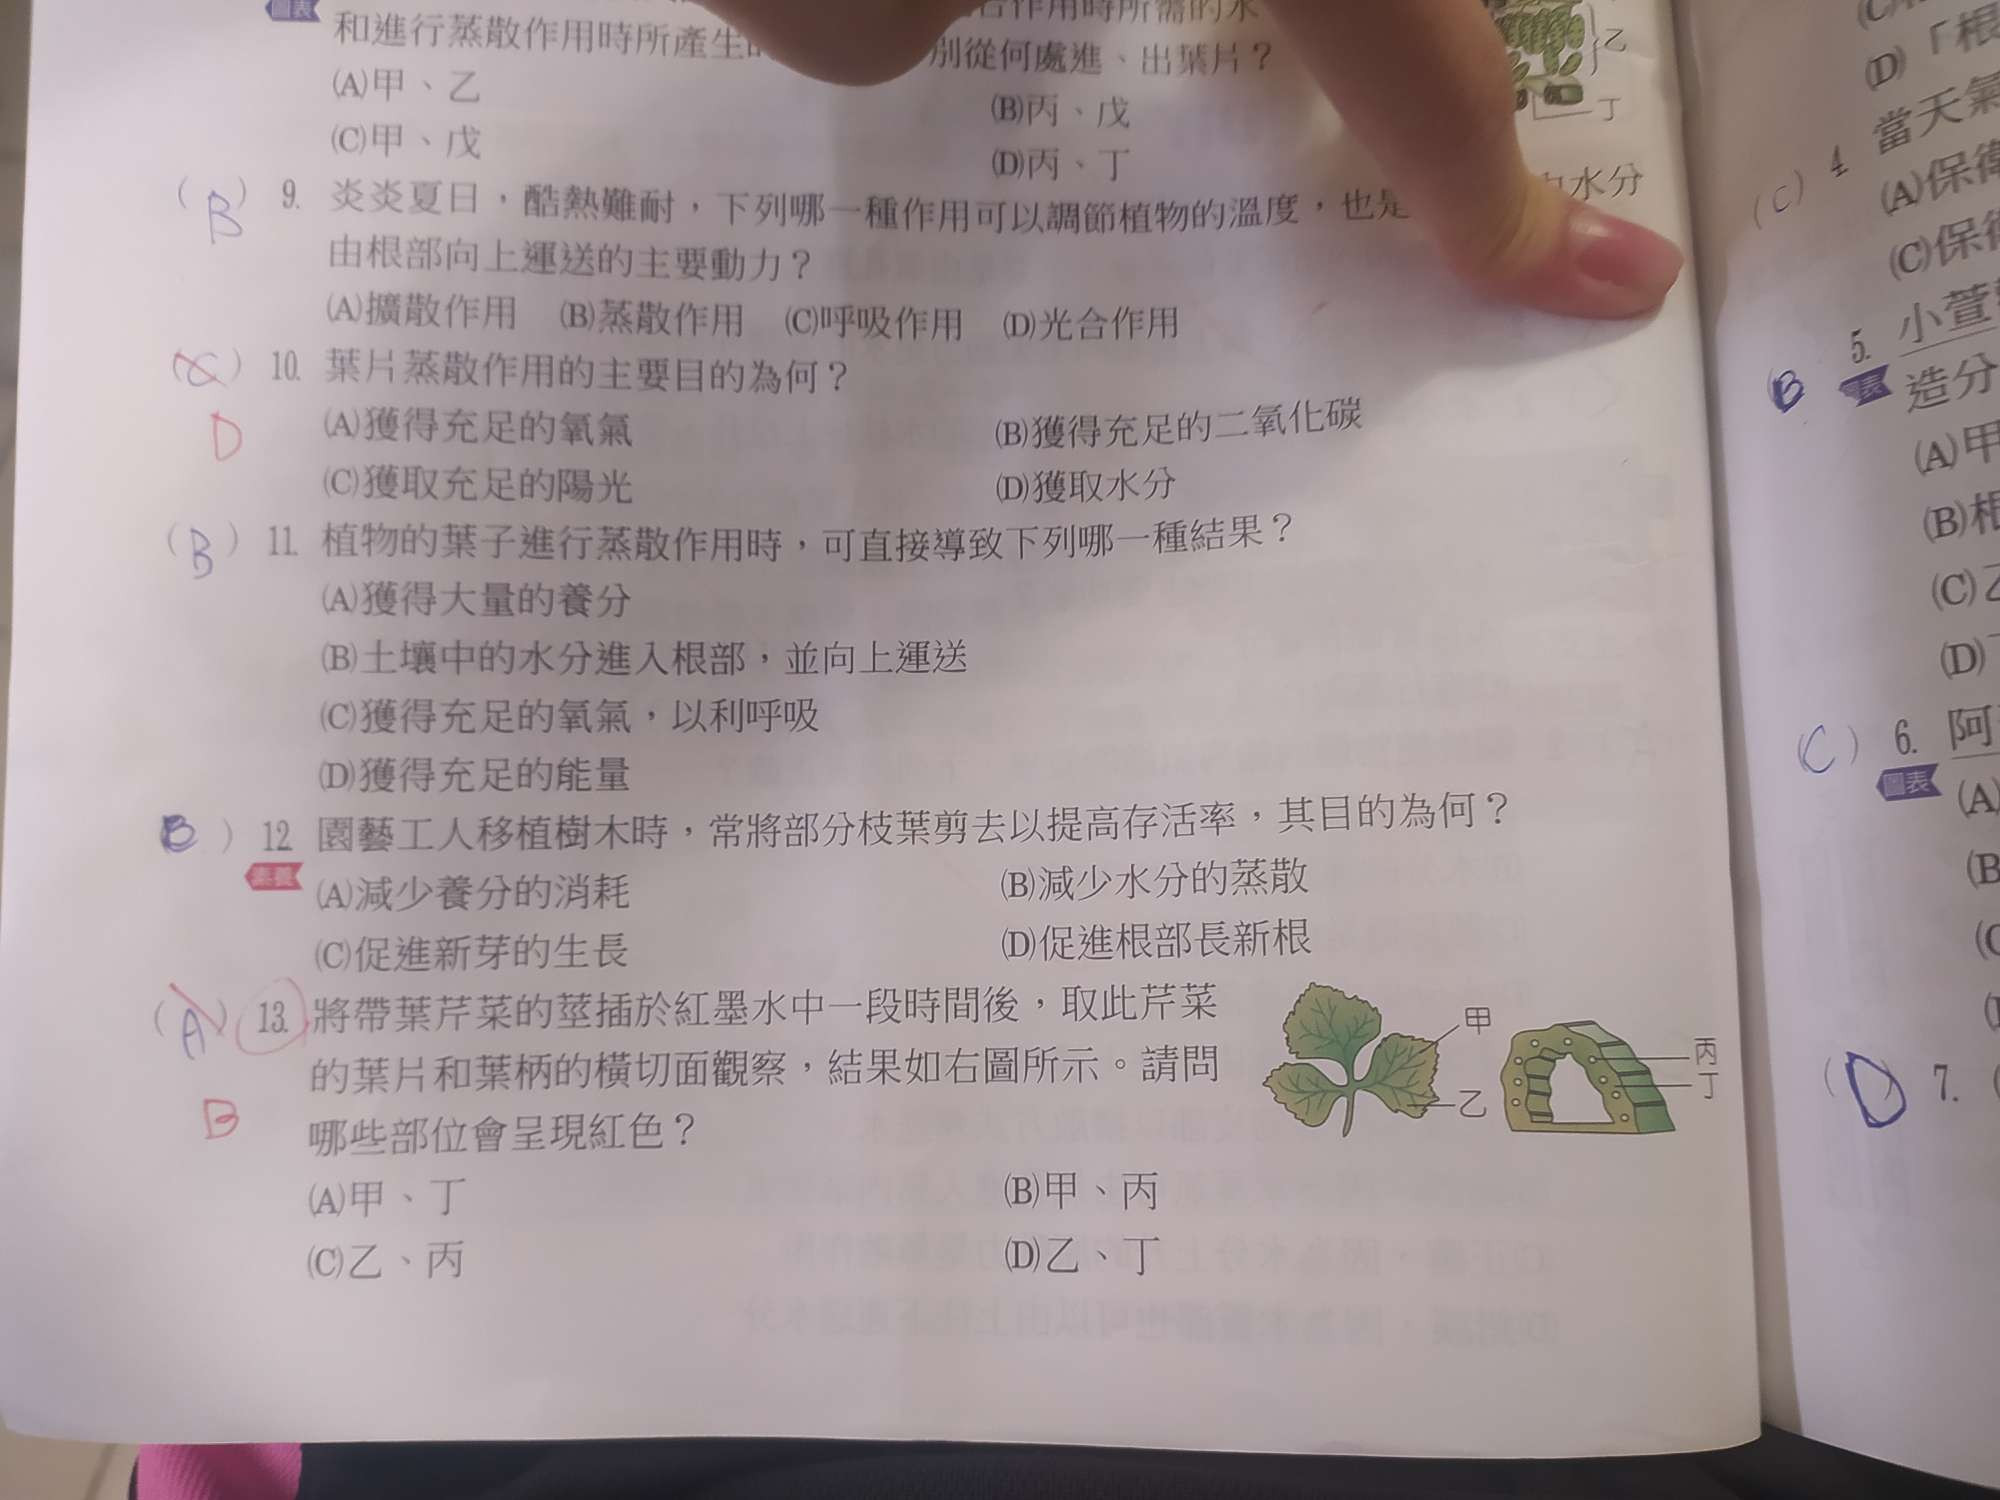 圖表
和進行蒸散作用時所產生
合作用時所需的水
別從何處進、出葉片？
(A)甲、乙
(B)丙、戊
(C)甲、戊
(D)丙、丁
乙
丁
(B) 9. 炎炎夏日，酷熱難耐，下列哪一種作用可以調節植物的溫度，也是 水分
由根部向上運送的主要動力？
(A)擴散作用 (B)蒸散作用 (C)呼吸作用 (D)光合作用
(C) 10. 葉片蒸散作用的主要目的為何？
D
(A)獲得充足的氧氣 (B)獲得充足的二氧化碳
(C)獲取充足的陽光 (D)獲取水分
(B) 11. 植物的葉子進行蒸散作用時，可直接導致下列哪一種結果？
(A)獲得大量的養分
(B)土壤中的水分進入根部，並向上運送
(C)獲得充足的氧氣，以利呼吸
(D)獲得充足的能量
B ) 12. 園藝工人移植樹木時，常將部分枝葉剪去以提高存活率，其目的為何？
素養
(A)減少養分的消耗 (B)減少水分的蒸散
(C)促進新芽的生長 (D)促進根部長新根
(A) 13. 將帶葉芹菜的莖插於紅墨水中一段時間後，取此芹菜
的葉片和葉柄的橫切面觀察，結果如右圖所示。請問
B
哪些部位會呈現紅色？
甲
乙
丙
丁
(A)甲、丁 (B)甲、丙
(C)乙、丙 (D)乙、丁
(D)「根
(C) 4.
當天氣
(A)保衛
(C)保衛
B 5. 小萱
圖表
造分
(A)甲
(B)根
(C)乙
(D)
(C) 6. 阿
圖表
(A)
(B
(C
(D) 7.